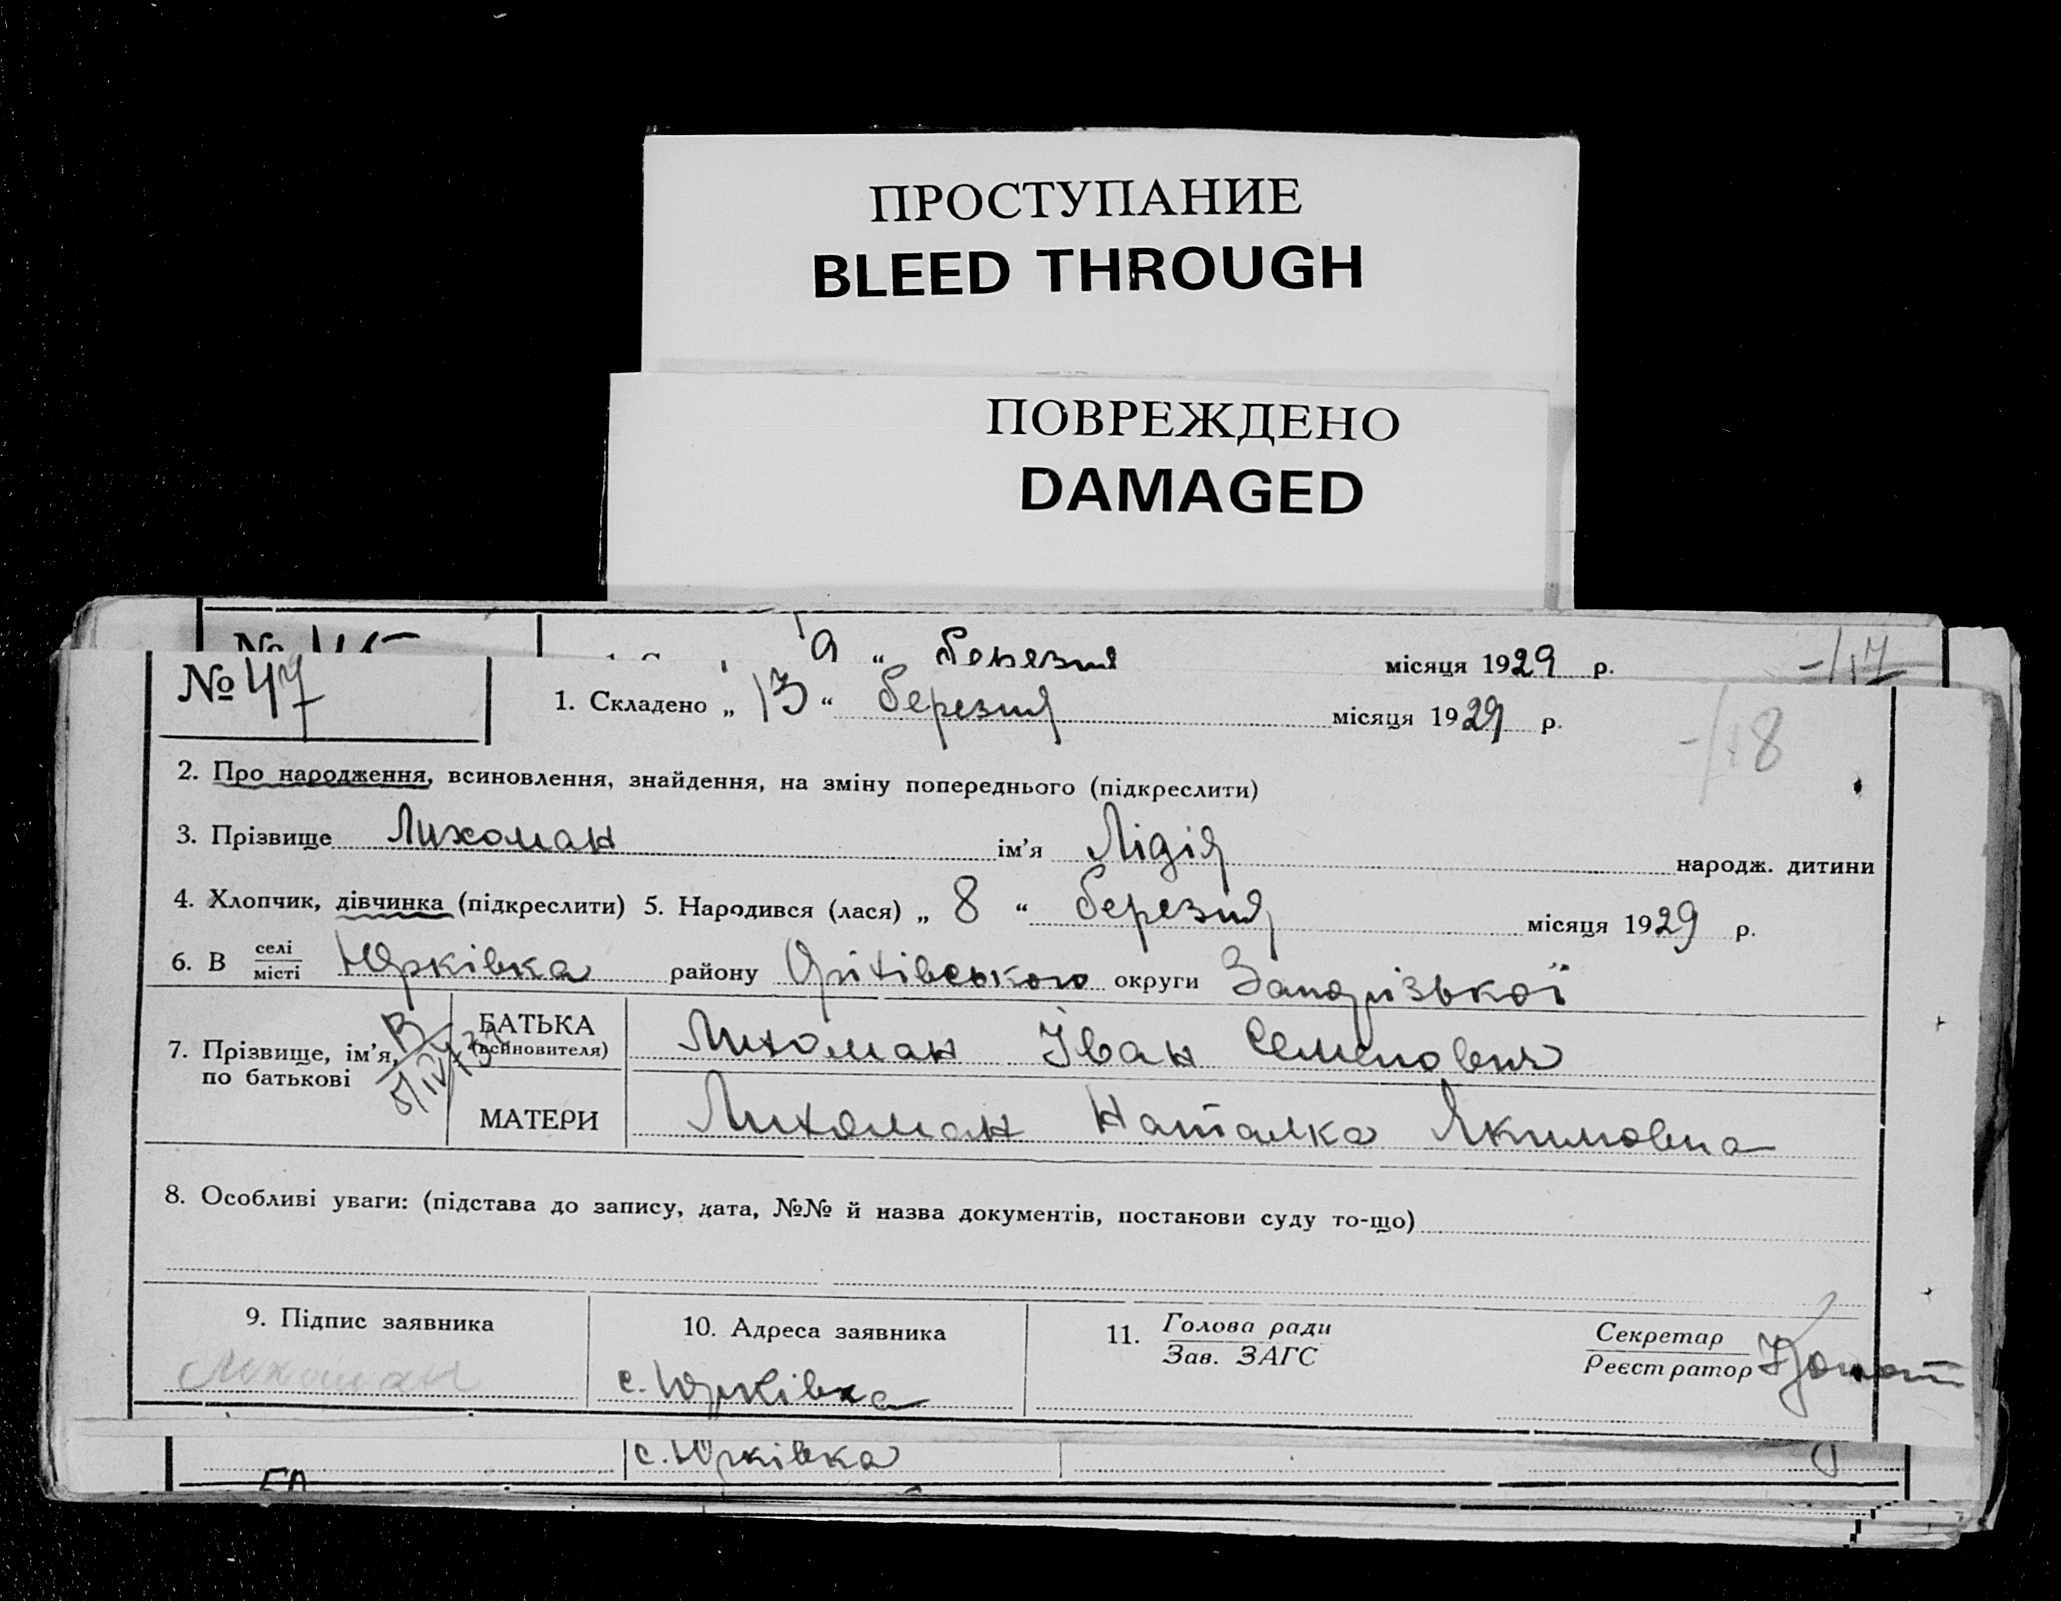 ПРОСТУПАНИЕ
BLEED THROUGH
ПОВРЕЖДЕНО
DAMAGED
березня місяця 1929 р. -/17
№ 47 1. Складено „ 13 “ березня місяця 1929 р.
-/18
2. Про народження, всиновлення, знайдення, на зміну попереднього (підкреслити)
3. Прізвище Лихоман ім’я Лідія народж. дитини
4. Хлопчик, дівчинка (підкреслити) 5. Народився (лася) „ 8 “ березня місяця 1929 р.
6. В селі місті Юрківка району Оріхівського округи Запорізької
7. Прізвище, ім’я, по батькові
БАТЬКА (всиновителя) Лихоман Іван Семенович
МАТЕРИ Лихоман Наталка Якимовна
8. Особливі уваги: (підстава до запису, дата, №№ й назва документів, постанови суду то-що)
9. Підпис заявника 10. Адреса заявника 11. Голова ради Зав. ЗАГС Секретар Реєстратор
Лихоман с. Юрківка
с. Юрківка